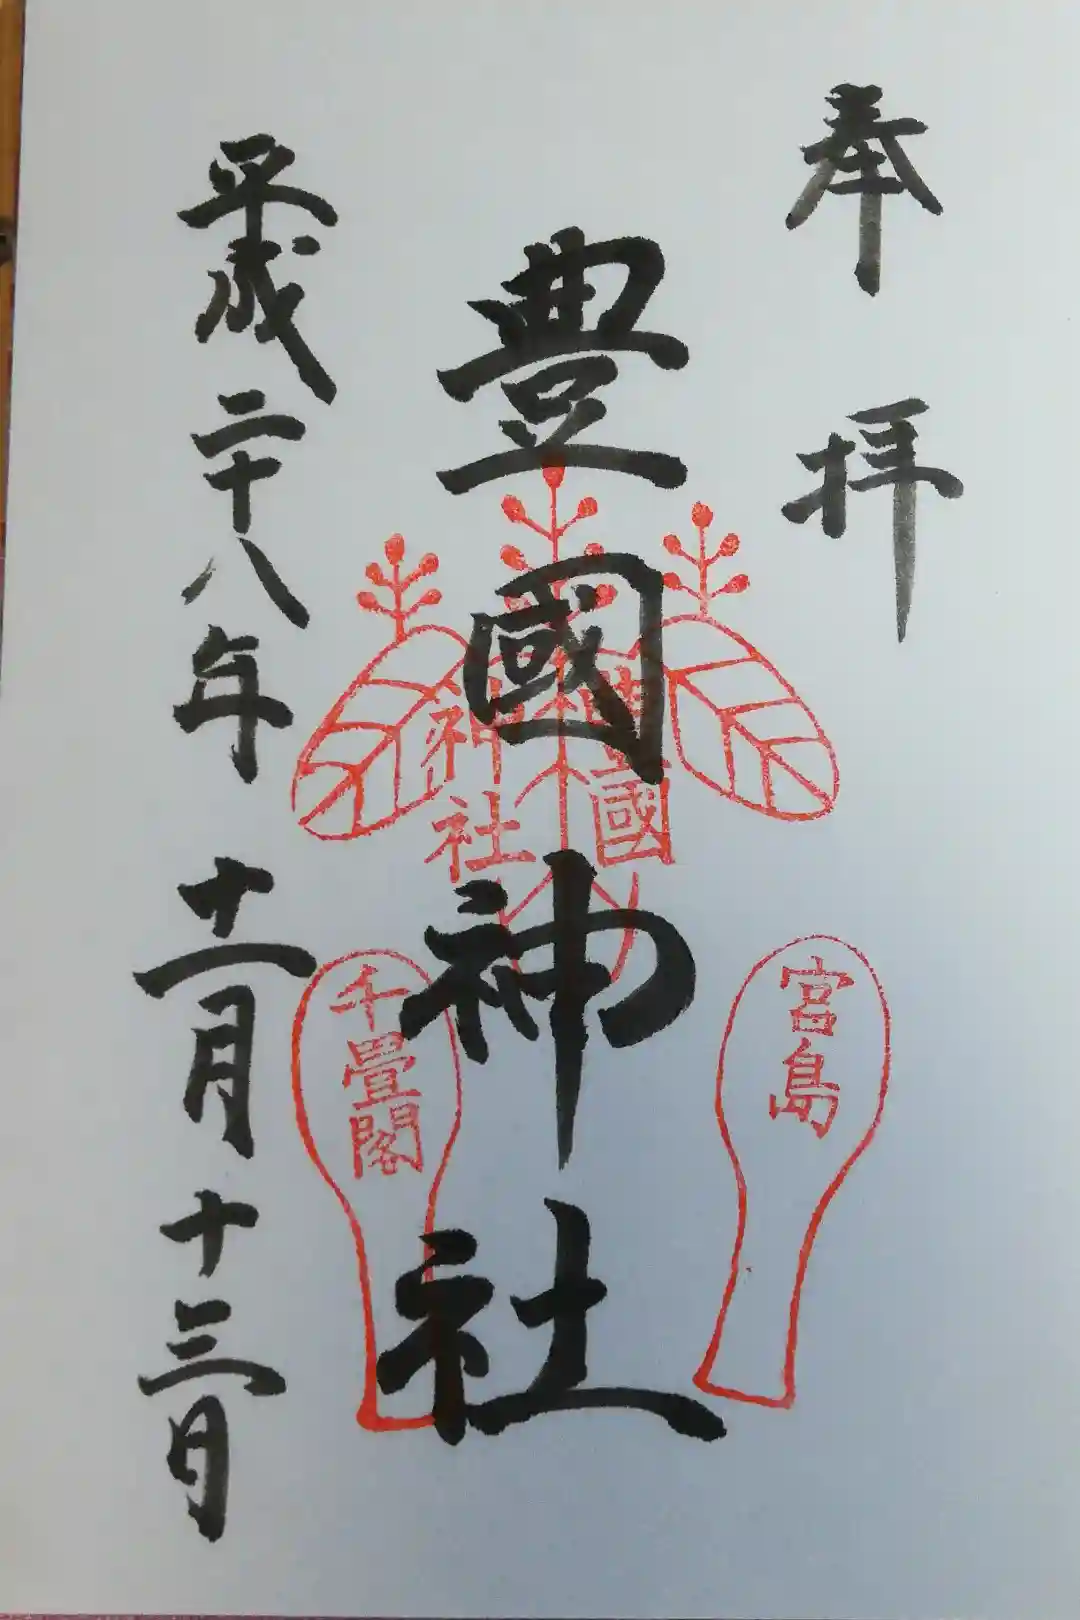 奉拝
豊國神社
平成二十八年十一月十三日
豊國
神社
宮島
千畳閣